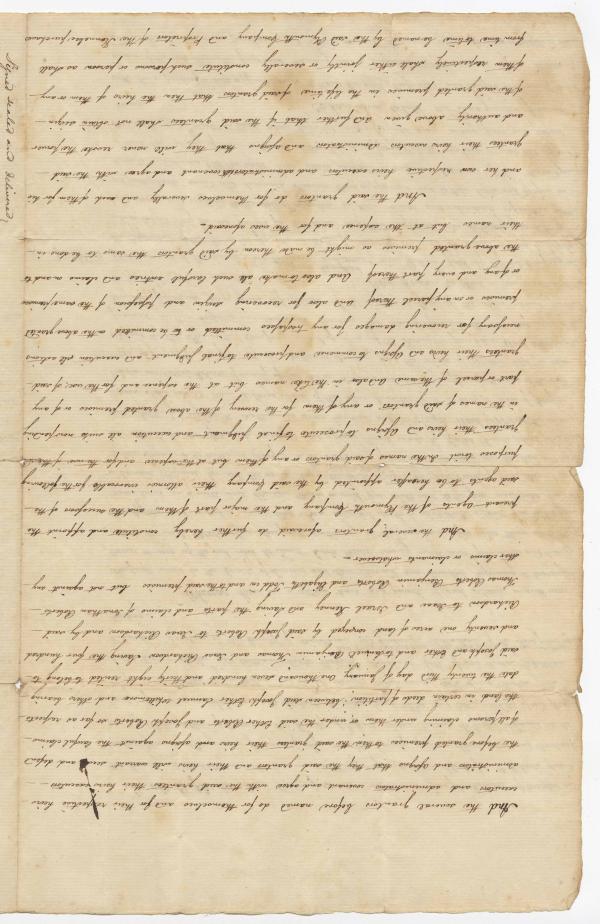 And the several grantors before named do for themselves and for their respective heirs
executors and administrators covenant and agree with the said grantees their heirs executors
administrators and assigns that they the said grantors and their heirs will warrant and defend
the before granted premises to them the said grantees their heirs and assigns against the lawful claims
of all persons claiming under them or under the said Esther Roberts and Joseph Roberts so far as respects
the land in certain deeds of partition between said Joseph Esther Samuel Whittemore and others bearing
date the twenty third day of January One thousand seven hundred and thirty eight
said Joseph and Esther and Benjamin Thomas and Ivory Richardson saving the four hundred
and seventy one acres of land conveyed by said Joseph Roberts to Richardson and by said
Richardson to Isaac and Israel Henry and saving the parts and claims of Jonathan Roberts
Thomas Roberts Benjamin Roberts and Elizabeth Todd in and to the said premises but not against any
other claims or claimants whatsoever —
And the several grantors aforesaid do further hereby constitute and appoint the
present Agents of the Plymouth Company and the major part of them and the successors of the
said agents to be hereafter appointed by the said Company their attornies irrevocable for the following
purposes (viz) in the names of said grantors or any of them but at the expence and for the use of the
grantees their heirs and assigns to prosecute to final judgment and execution all suits now pending
in the names of said grantors or any of them for the recovery of the above granted premises or of any
part or parcel of the same and also in the like names but at the expence and for the use, of said
grantees their heirs and assigns to commence and prosecute to final judgment and execution all actions
necessary for recovering damages for any trespasses committed or to be committed on the above granted
premises or on any parcel thereof and also for recovering seizin and possession of the same premises
or of any and every part thereof and also to make all such lawful entries and claims in and to
the above granted premises as might be made thereon by said grantors the same to be done in
their names but at the expence and for the uses aforesaid —
And the said grantors do for themselves and severally and each of them for his
and her own respective heirs executors and administrators covenant and agree with the said
grantees their heirs executors administrators and assigns that they will never revoke the power
and authority above given and further that if the said grantees shall not obtain seizin
of the said granted premises in the life time of said grantors that then the heirs of them or any
of them respectively shall either jointly or severally constitute such persons or person as shall
from time to time be named by the said Plymouth Company and Proprietors of the Kennebec purchase
Signed sealed and delivered